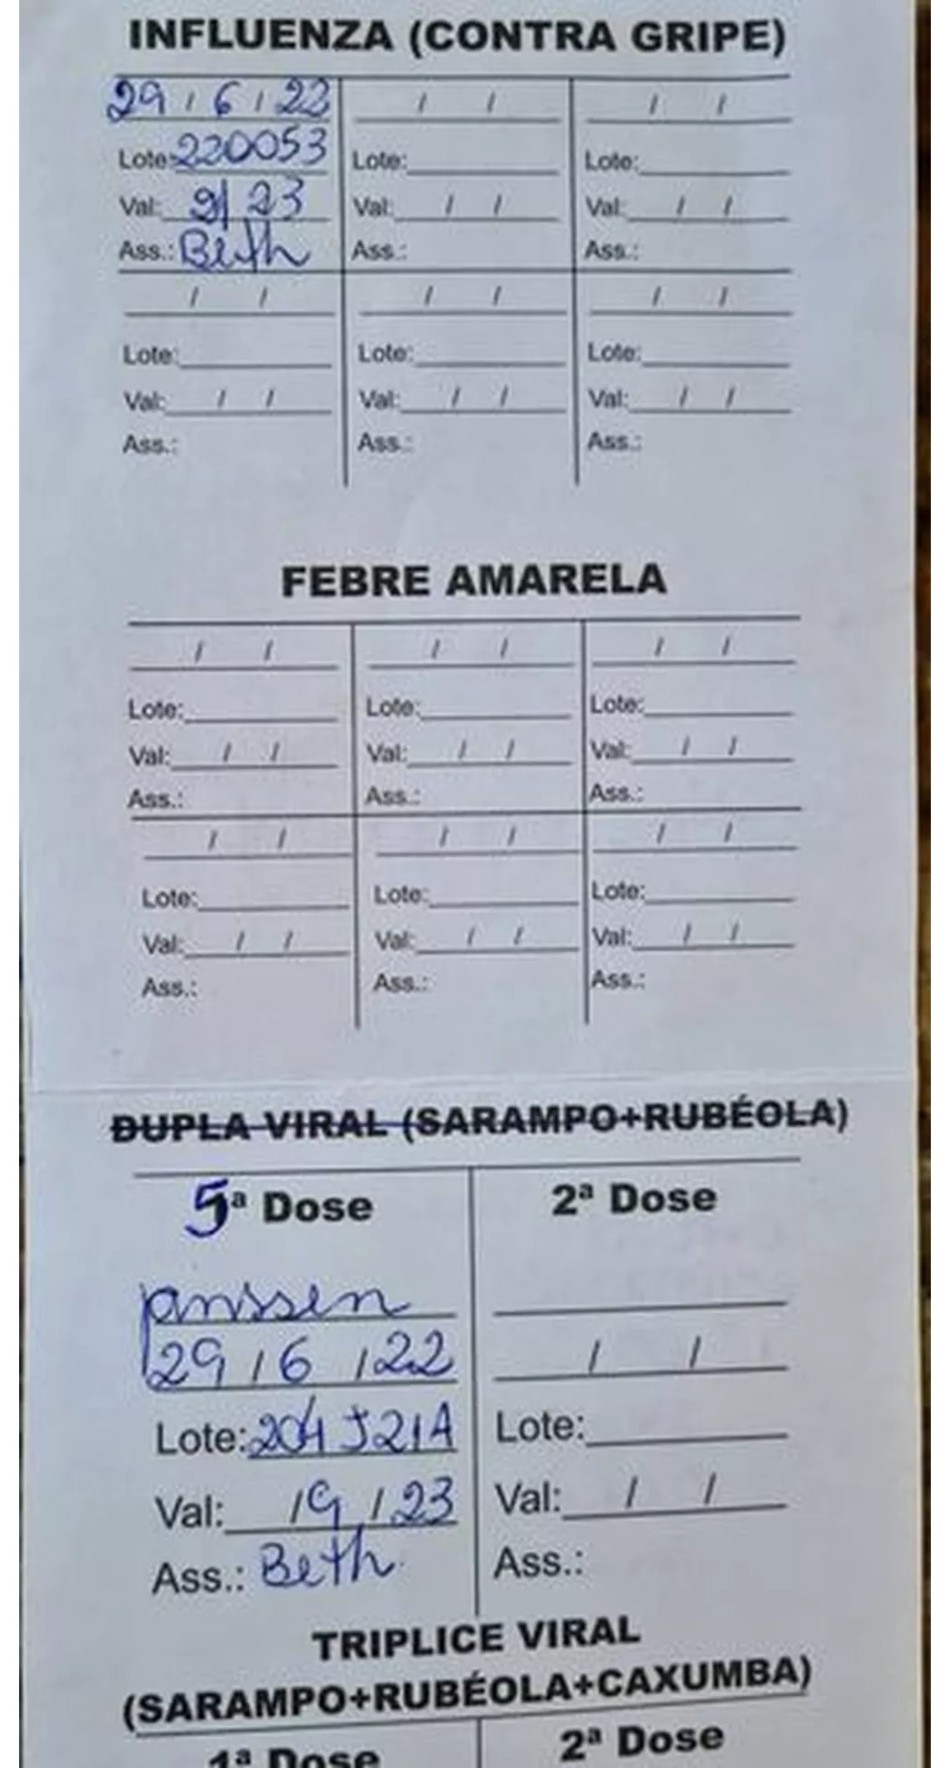 INFLUENZA (CONTRA GRIPE)
29 / 6 / 22 / / / /
Lote: 220053 Lote: Lote:
Val: 9/ 23 Val: / / Val: / /
Ass.: Beth Ass.: Ass.:
/ / / / / /
Lote: Lote: Lote:
Val: / / Val: / / Val: / /
Ass.: Ass.: Ass.:
FEBRE AMARELA
/ / / / / /
Lote: Lote: Lote:
Val: / / Val: / / Val: / /
Ass.: Ass.: Ass.:
/ / / / / /
Lote: Lote: Lote:
Val: / / Val: / / Val: / /
Ass.: Ass.: Ass.:
DUPLA VIRAL (SARAMPO+RUBÉOLA)
5ª Dose 2ª Dose
Janssen
29 / 6 / 22 / /
Lote: 204J21A Lote:
Val: / 9 / 23 Val: / /
Ass.: Beth Ass.:
TRIPLICE VIRAL
(SARAMPO+RUBÉOLA+CAXUMBA)
1ª Dose 2ª Dose